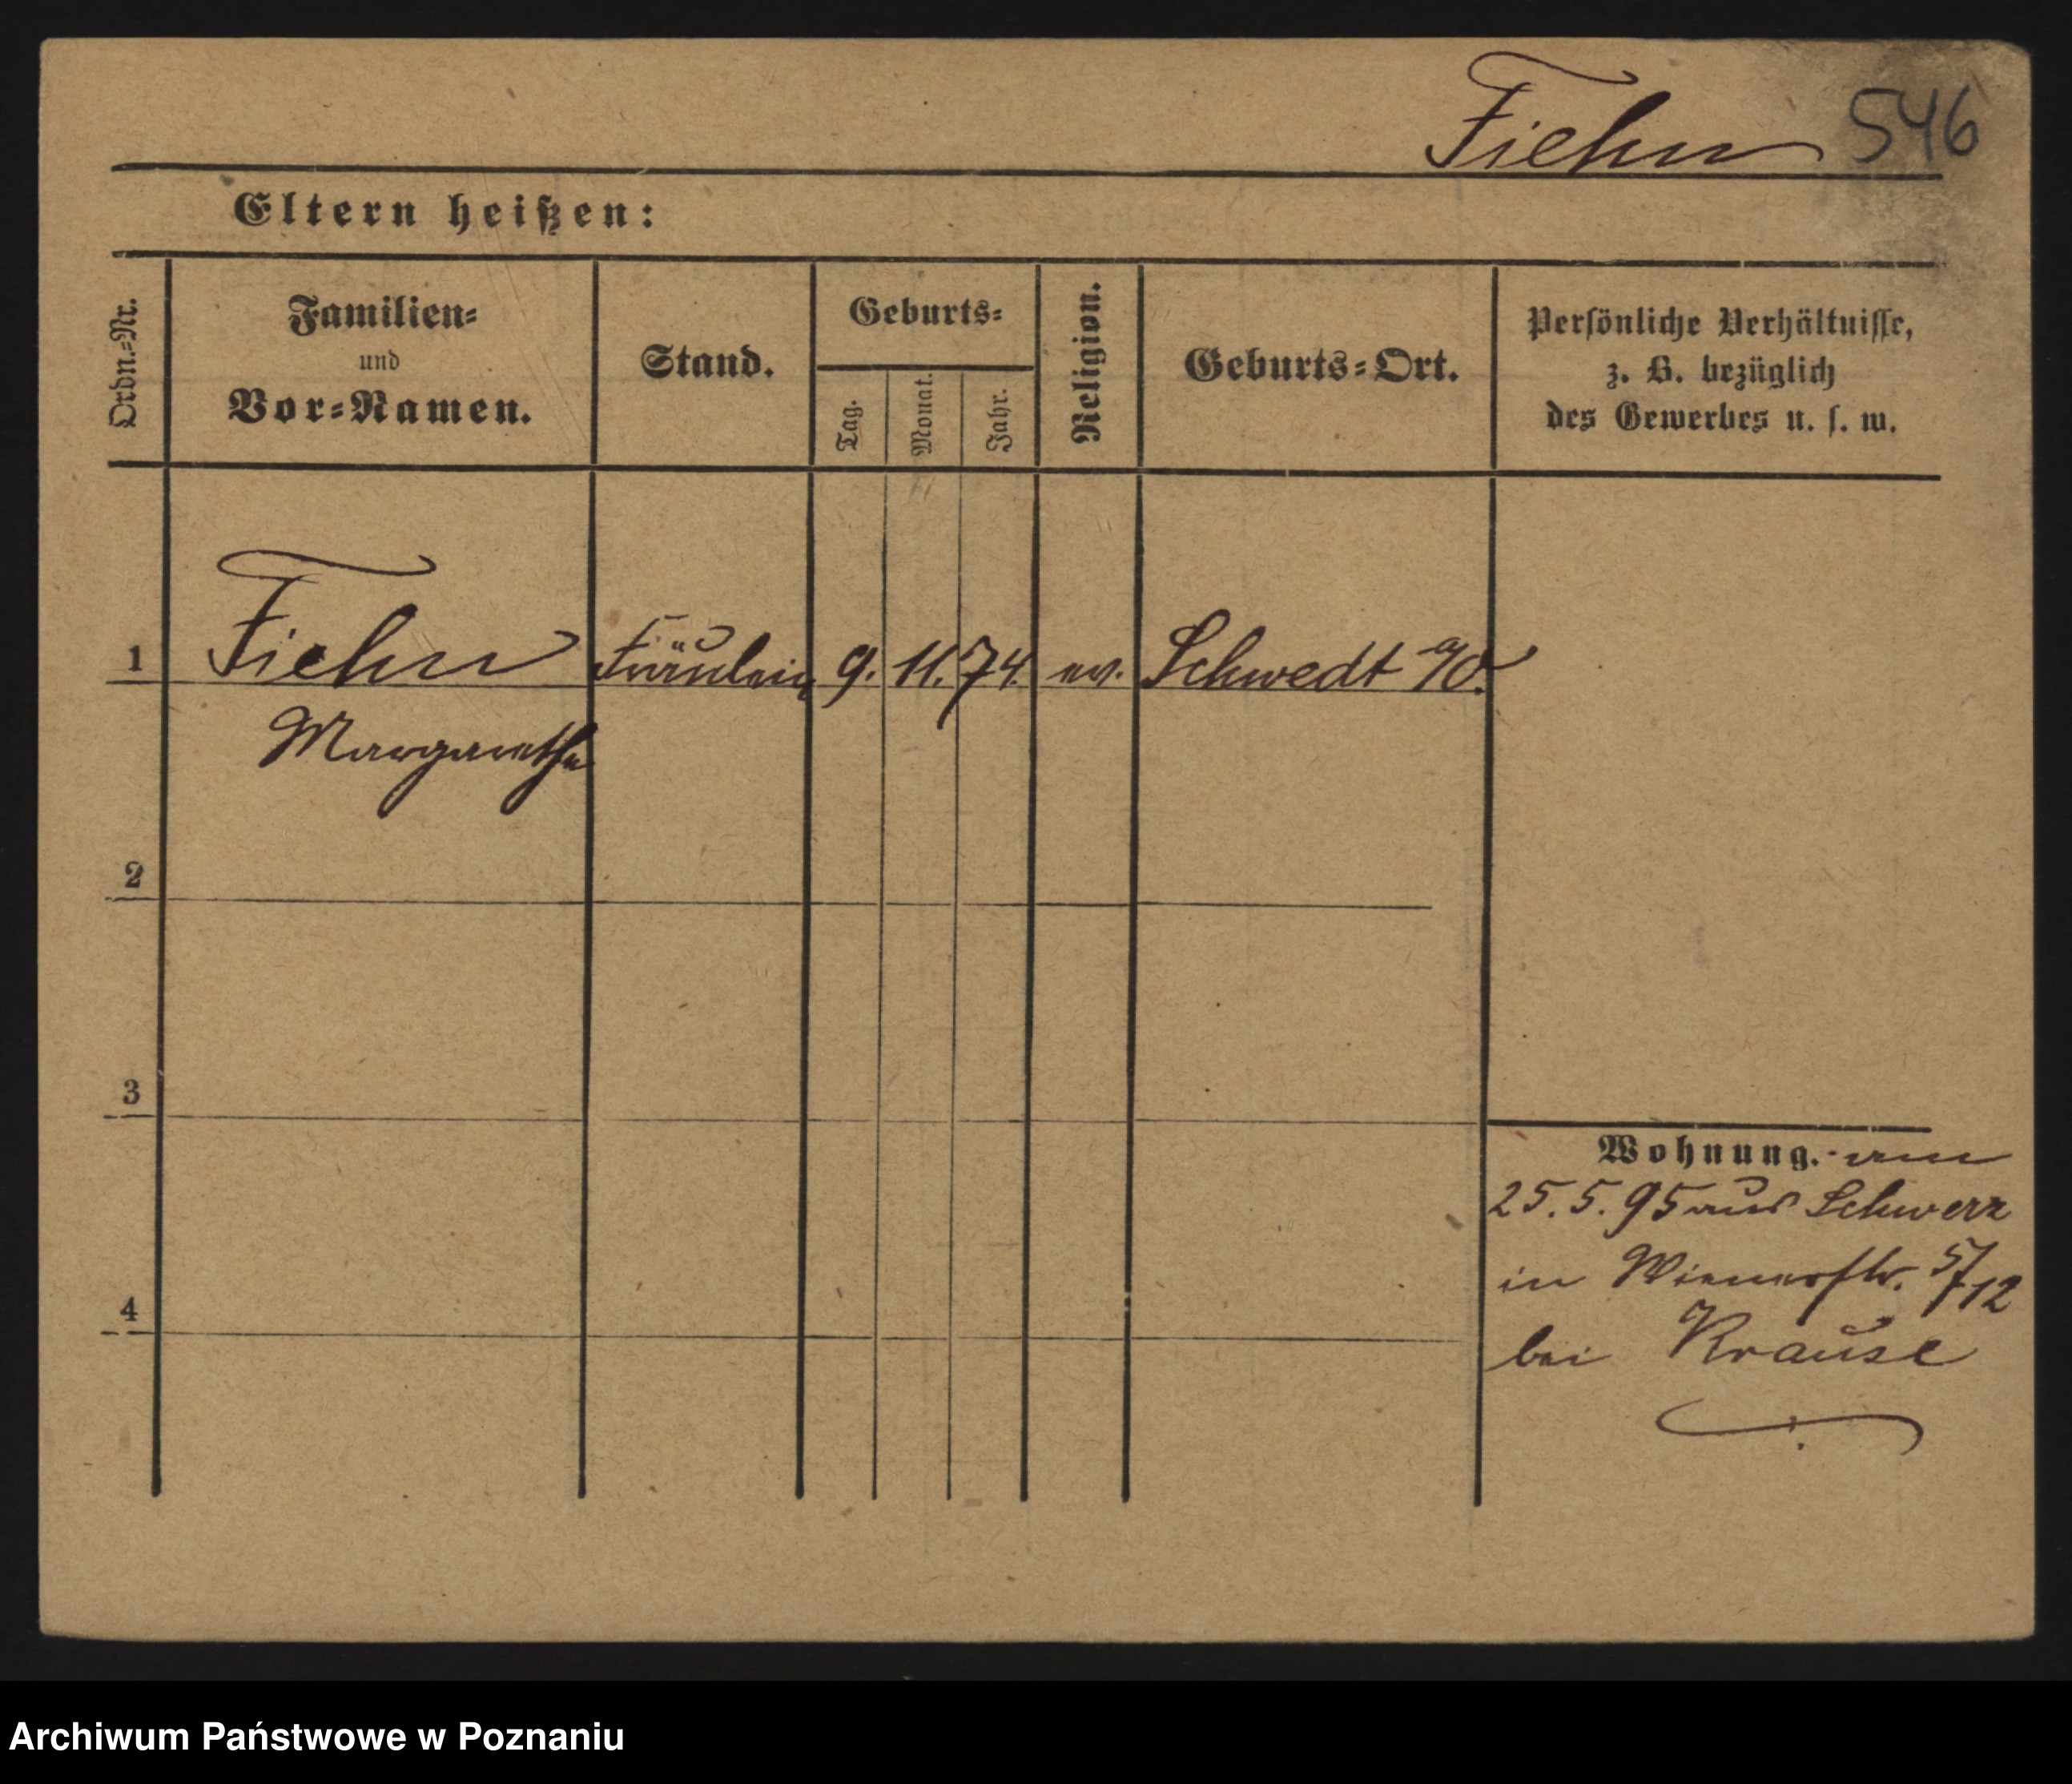 Fiehn 546
Eltern heißen:
Ordn.=Nr.
Familien=
und
Vor=Namen.
Stand.
Geburts=
Tag.
Monat.
Jahr.
Religion.
Geburts=Ort.
Persönliche Verhältnisse,
z. B. bezüglich
des Gewerbes u. s. w.
1 Fiehn Fräulein 9. 11. 74. ev. Schwedt a/O.
Margarethe
2
3
4
Wohnung. am
25. 5. 95 aus
in Wienerstr. 5/712
bei Krause
Archiwum Państwowe w Poznaniu